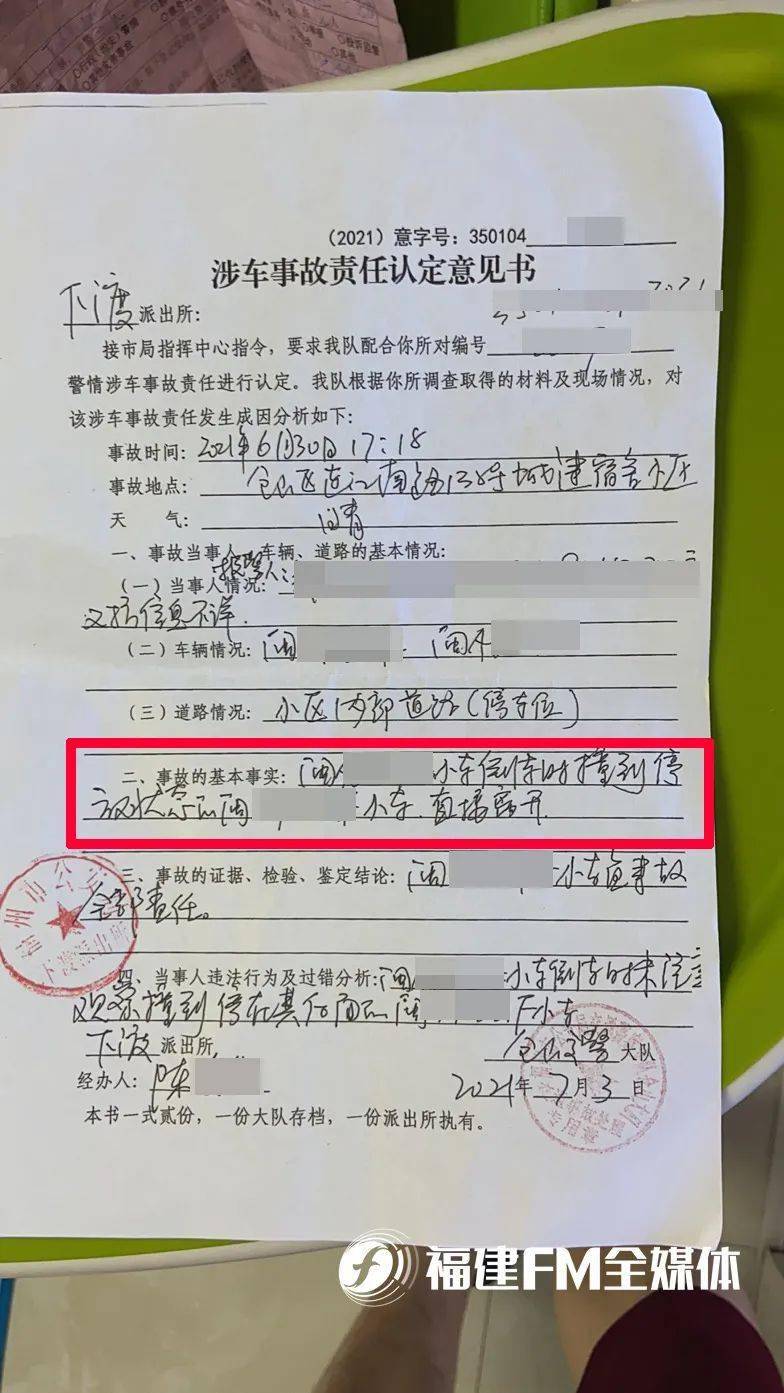 （2021）意字号：350104
涉车事故责任认定意见书
下渡派出所：
接市局指挥中心指令，要求我队配合你所对编号
警情涉车事故责任进行认定。我队根据你所调查取得的材料及现场情况，对
该涉车事故责任发生成因分析如下：
事故时间：2021年6月30日17:18
事故地点：仓山区连江南路138号城建宿舍小区
天 气：
一、事故当事人、车辆、道路的基本情况：
报警人：
（一）当事人情况：
信息不详.
（二）车辆情况：闽 闽A
（三）道路情况：小区内部道路(停车位)
二、事故的基本事实：闽A 小车倒车时撞到停
放状态的闽 小车.直接离开
三、事故的证据、检验、鉴定结论：闽 小车负事故
全部责任。
四、当事人违法行为及过错分析：闽 小车倒车时未注意
观察撞到停在其后面的闽 小车
下渡派出所 仓山交警大队
经办人：陈 2021年7月3日
本书一式贰份，一份大队存档，一份派出所执有。
福州市公安
下渡派出所
福建FM全媒体